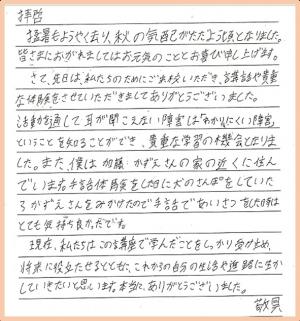 拝啓
猛暑もようやく去り、秋の気配がただよう頃となりました。
皆さまにおかれましてはお元気のこととお喜び申し上げます。
さて、先日は、私たちのためにご来校いただき、講話や貴重
な体験をさせていただきましてありがとうございました。
活動を通して耳が聞こえない障害は「わかりにくい障害」
ということを知ることができ、貴重な学習の機会となりま
した。また、僕は加藤かずえさんの家の近くに住ん
でいます。手話体験をした日に犬のさんぽをしていた
らかずえさんを見かけたので手話であいさつをした時は
とても気持ち良かったです。
現在、私たちはこの講座で学んだことをしっかり受け止め、
将来に役立たせるとともに、これからの自分の生活や進路に生か
していきたいと思います。本当に、ありがとうございました。
敬具